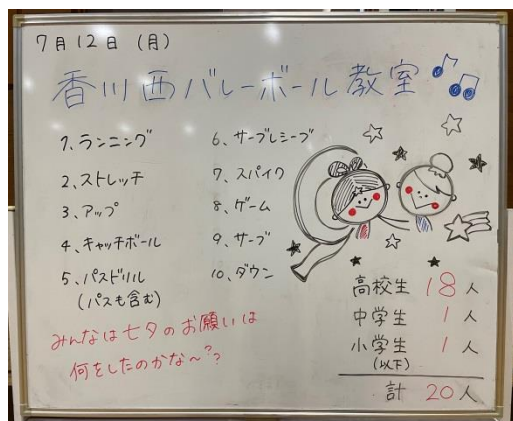 7月12日（月）
香川西バレーボール教室
1、ランニング
2、ストレッチ
3、アップ
4、キャッチボール
5、パスドリル
（パスも含む）
6、サーブレシーブ
7、スパイク
8、ゲーム
9、サーブ
10、ダウン
みんなは七夕のお願いは
何をしたのかな～??
高校生 18人
中学生 1人
小学生 1人
（以下）
計 20人